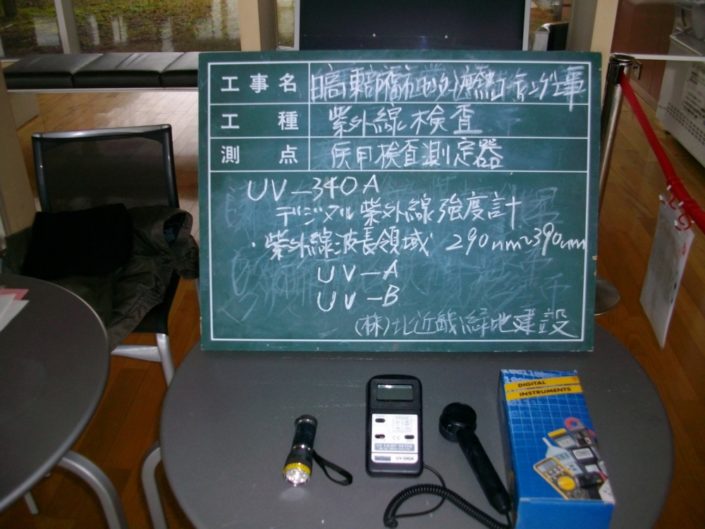 工事名
工種 紫外線検査
測点 使用検査測定器
UV-340A
デジタル紫外線強度計
・紫外線波長領域 290nm~390nm
UV-A
UV-B
(株)北近畿緑地建設
DIGITAL
INSTRUMENTS